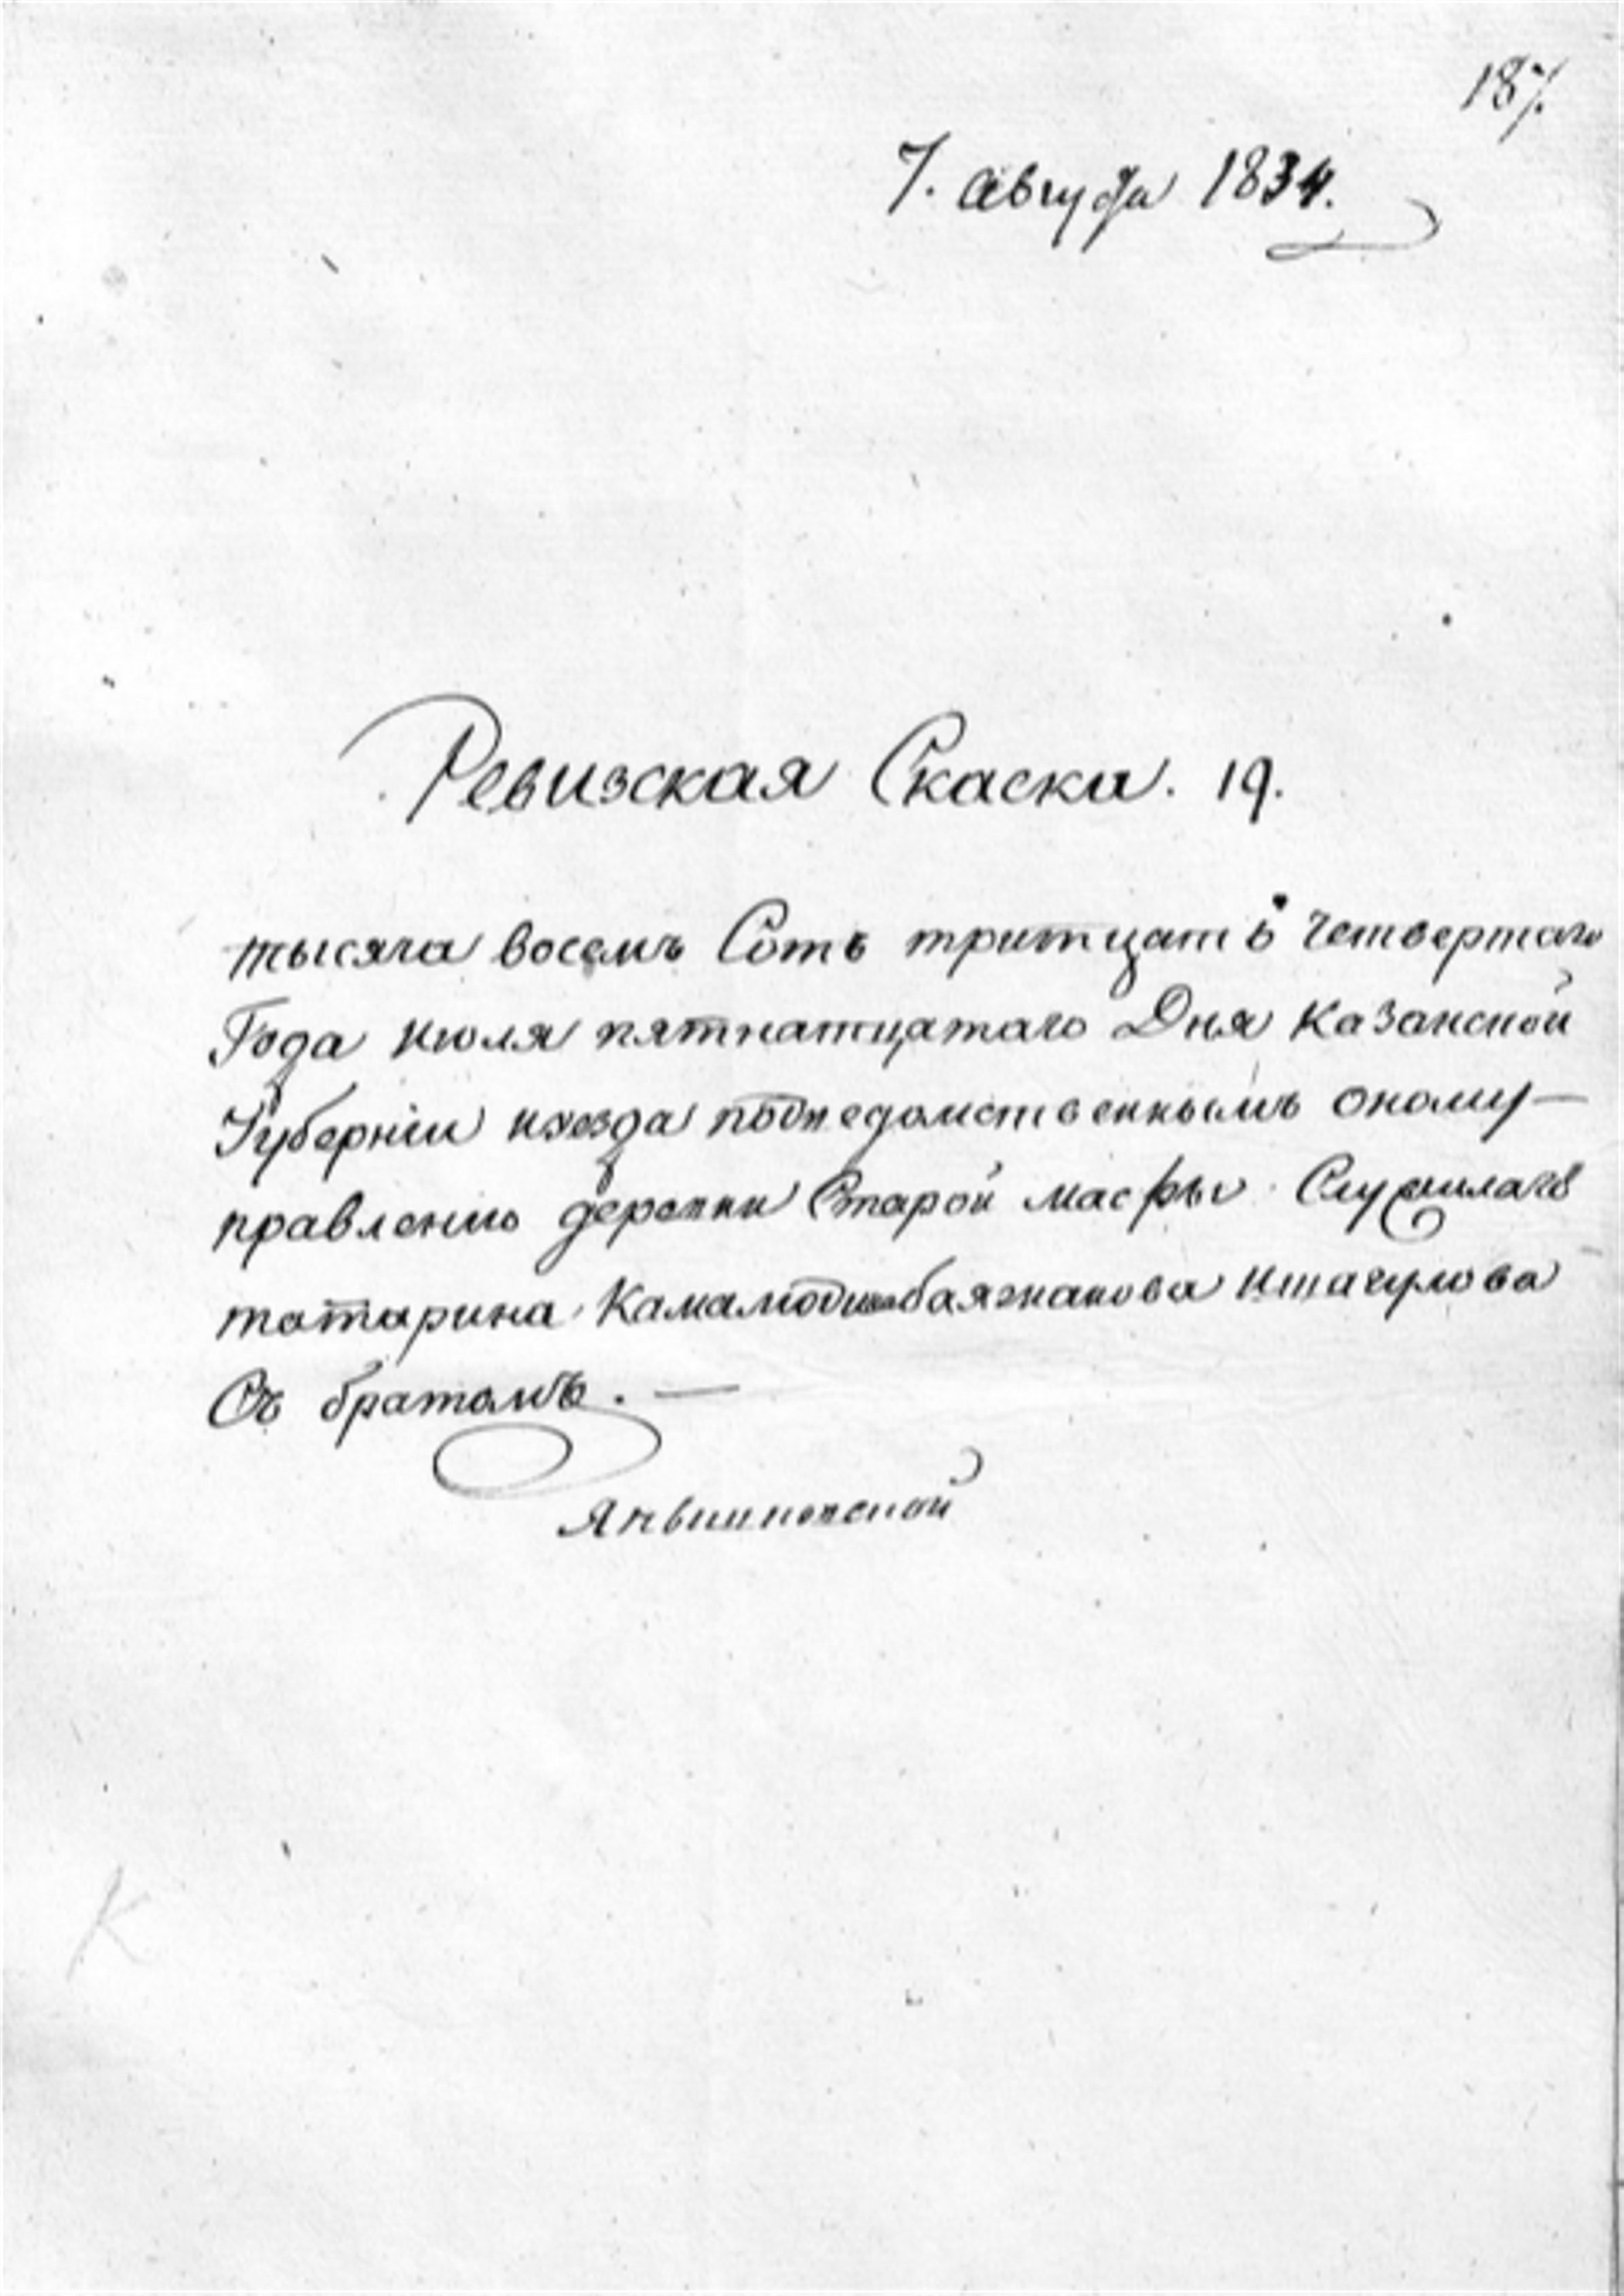 187.
7. августа 1834.
Ревизская Скаска. 19.
тысяча восемъ Сотъ тритцать четвертаго
Года июля пятнатцатаго Дня Казанской
Губернии уезда подведомственнымъ оному—
правлению деревни Старой масры Служилаго
татарина Ишагулова
Съ братомъ. —
К